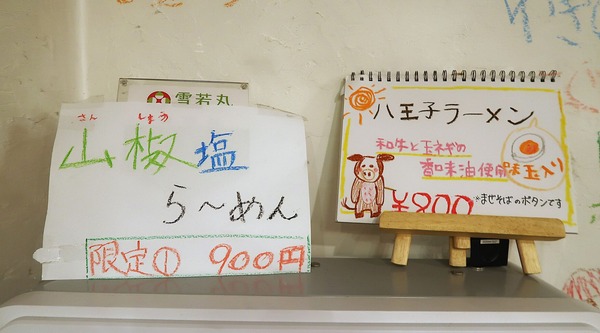 雪若丸
さん しょう
山椒塩
ら〜めん
限定① 900円
八王子ラーメン
和牛と玉ネギの
香味油使用味玉入り
¥800 *まぜそばのボタンです